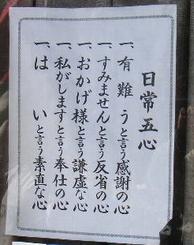 日常五心
一、有難うと言う感謝の心
一、すみませんと言う反省の心
一、おかげ様と言う謙虚な心
一、私がしますと言う奉仕の心
一、はいと言う素直な心